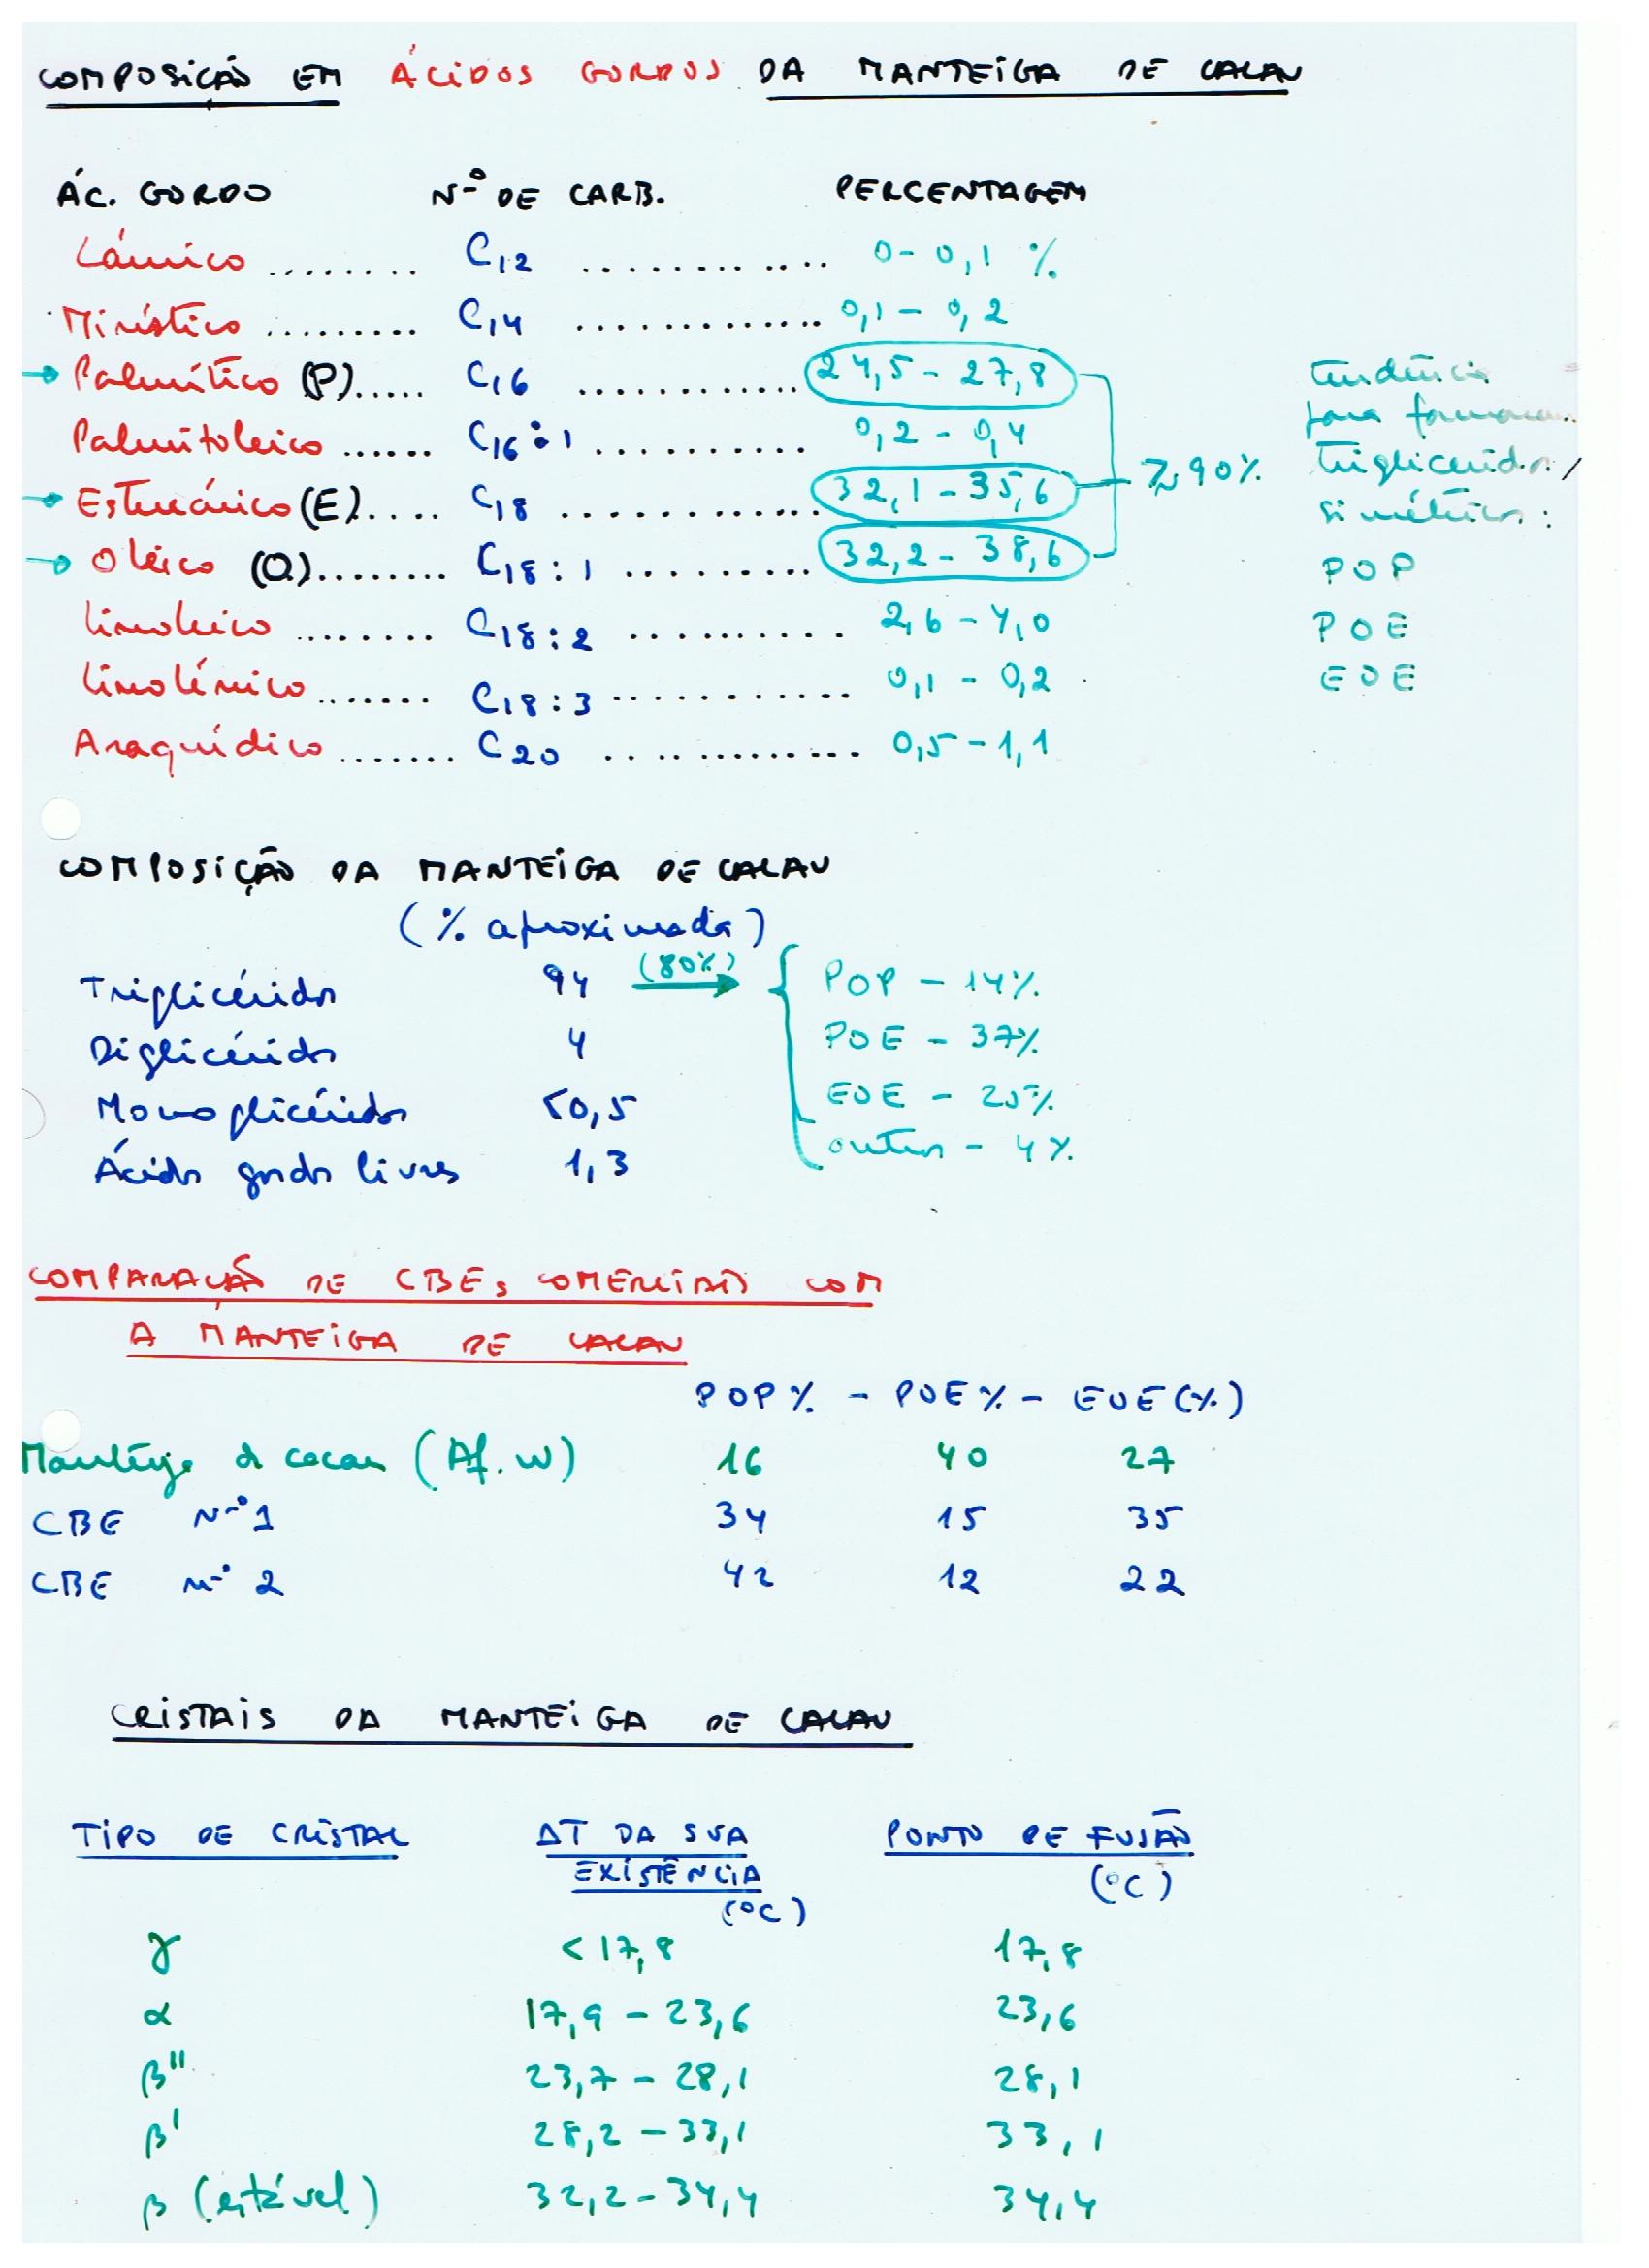 COMPOSIÇÃO EM ÁCIDOS GORDOS DA MANTEIGA DE CACAU
ÁC. GORDO Nº DE CARB. PERCENTAGEM
Láurico ........ C12 ............ 0 - 0,1 %
Mirístico ......... C14 ............. 0,1 - 0,2
→ Palmítico (P)..... C16 ............ 24,5 - 27,8
Palmitoleico ...... C16:1 ........... 0,2 - 0,4
→ Esteárico (E)..... C18 ............. 32,1 - 35,6
→ Oleico (O)........ C18:1 .......... 32,2 - 38,6
Linoleico ........ C18:2 ........... 2,6 - 4,0
Linolénico ....... C18:3 ............ 0,1 - 0,2
Araquídico ....... C20 ............. 0,5 - 1,1
≥ 90%
tendência
para formarem
trigliceridos
simétricos:
POP
POE
EOE
COMPOSIÇÃO DA MANTEIGA DE CACAU
(% aproximada)
Triglicéridos 94 (80%) → POP - 14%
Diglicéridos 4 POE - 37%
Monoglicéridos <0,5 EOE - 25%
Ácidos gordos livres 1,3 outros - 4%
COMPARAÇÃO DE CBEs COMERCIAIS COM
A MANTEIGA DE CACAU
POP % - POE % - EOE (%)
Manteiga de cacau (Af. W) 16 40 27
CBE Nº 1 34 15 35
CBE nº 2 42 12 22
CRISTAIS DA MANTEIGA DE CACAU
TIPO DE CRISTAL ΔT DA SUA EXISTÊNCIA (ºC) PONTO DE FUSÃO (ºC)
γ < 17,8 17,8
α 17,9 - 23,6 23,6
β'' 23,7 - 28,1 28,1
β' 28,2 - 33,1 33,1
β (estável) 32,2 - 34,4 34,4